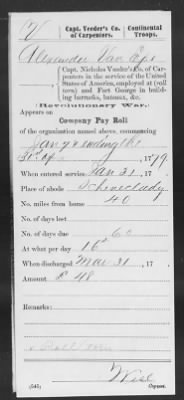 V | Capt. Veeder's Co. of Carpenters. | Continental Troops.
Alexander Van Eps
Capt. Nicholas Veeder's Co. of Carpenters in the service of the United States of America, employed at (roll torn) and Fort George in building barracks, bateaux, &c.
(Revolutionary War.)
Appears on
Company Pay Roll
of the organization named above, commencing
Jany & ending the
31st 1779
When entered service Jan 31, 17
Place of abode Schenectady
No. miles from home 40
No. of days lost
No. of days due 60
At what per day 16s
When discharged Mar 31, 17
Amount £ 48
Remarks:
Roll torn
Wise
(545) Copyist.